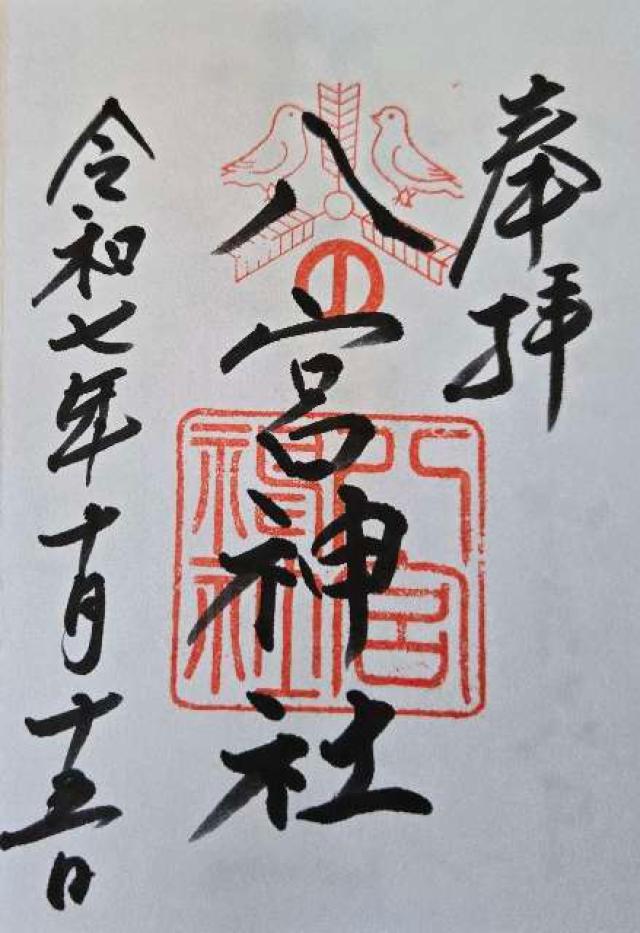 奉拝
八宮神社
八宮神社
令和七年十月十五日